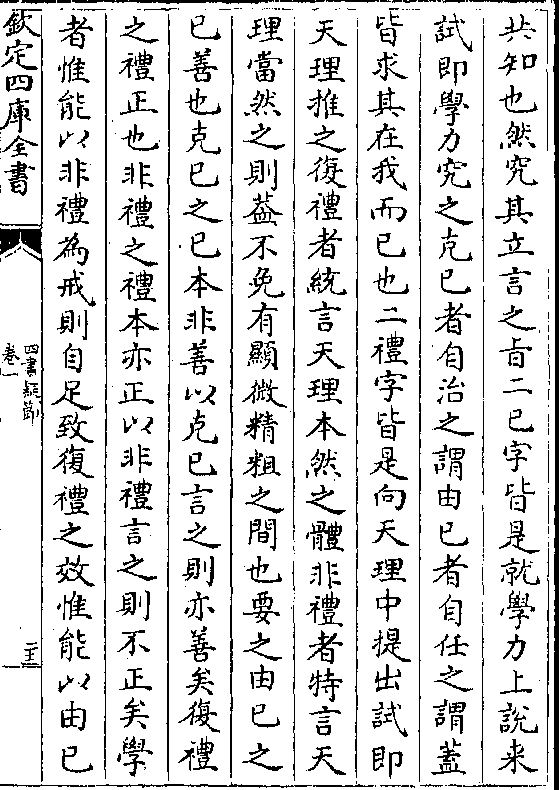 共知也然究其立言之㫖二已字皆是就學力上說来
試即學力究之克已者自治之謂由已者自任之謂蓋
皆求其在我而已也二禮字皆是向天理中提出試即
天理推之復禮者統言天理本然之體非禮者特言天
理當然之則葢不免有顯微精粗之間也要之由已之
已善也克已之已本非善以克已言之則亦善矣復禮
之禮正也非禮之禮本亦正以非禮言之則不正矣學
者惟能以非禮為戒則自足致復禮之效惟能以由已
欽定四庫全書
四書疑節
卷一